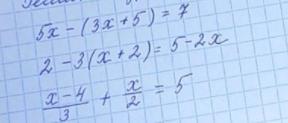 5x - (3x + 5) = 7
2 - 3(x + 2) = 5 - 2x
x - 4 / 3 + x / 2 = 5